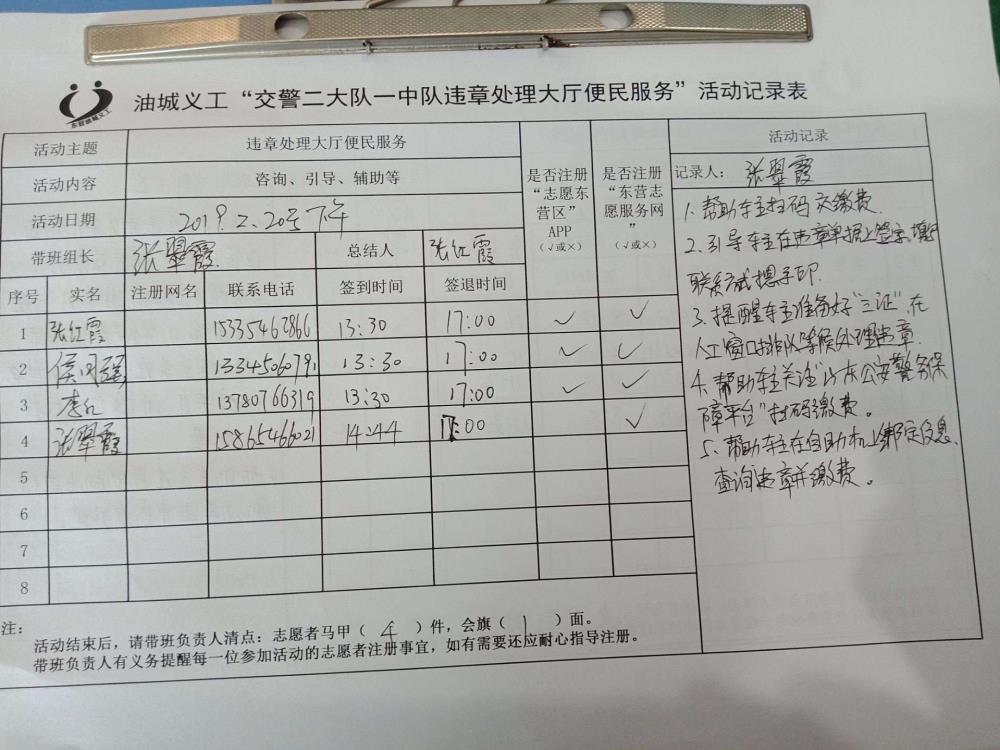 油城义工“交警二大队一中队违章处理大厅便民服务”活动记录表
东营油城义工
活动主题 违章处理大厅便民服务
活动内容 咨询、引导、辅助等
活动日期 2019.2.20号下午
带班组长 张翠霞 总结人 张红霞
是否注册“志愿东营区”APP（√或×）
是否注册“东营志愿服务网”（√或×）
序号 实名 注册网名 联系电话 签到时间 签退时间
1 张红霞 15335462866 13:30 17:00 ✓ ✓
2 13345060791 13:30 17:00 ✓ ✓
3 李 13780766319 13:30 17:00 ✓ ✓
4 张翠霞 15865466021 14:44 17:00 ✓
5
6
7
8
活动记录
记录人： 张翠霞
1.帮助车主扫码交缴费.
2.引导车主在违章单据上签字,填
联系方式摁手印.
3.提醒车主准备好“三证”,在
人工窗口排队等候处理违章.
4.帮助车主关注“山东公安警务保
障平台”扫码缴费。
5、帮助车主在自助机上绑定信息、
查询违章并缴费。
注：
活动结束后，请带班负责人清点：志愿者马甲（ 4 ）件，会旗（ 1 ）面。
带班负责人有义务提醒每一位参加活动的志愿者注册事宜，如有需要还应耐心指导注册。